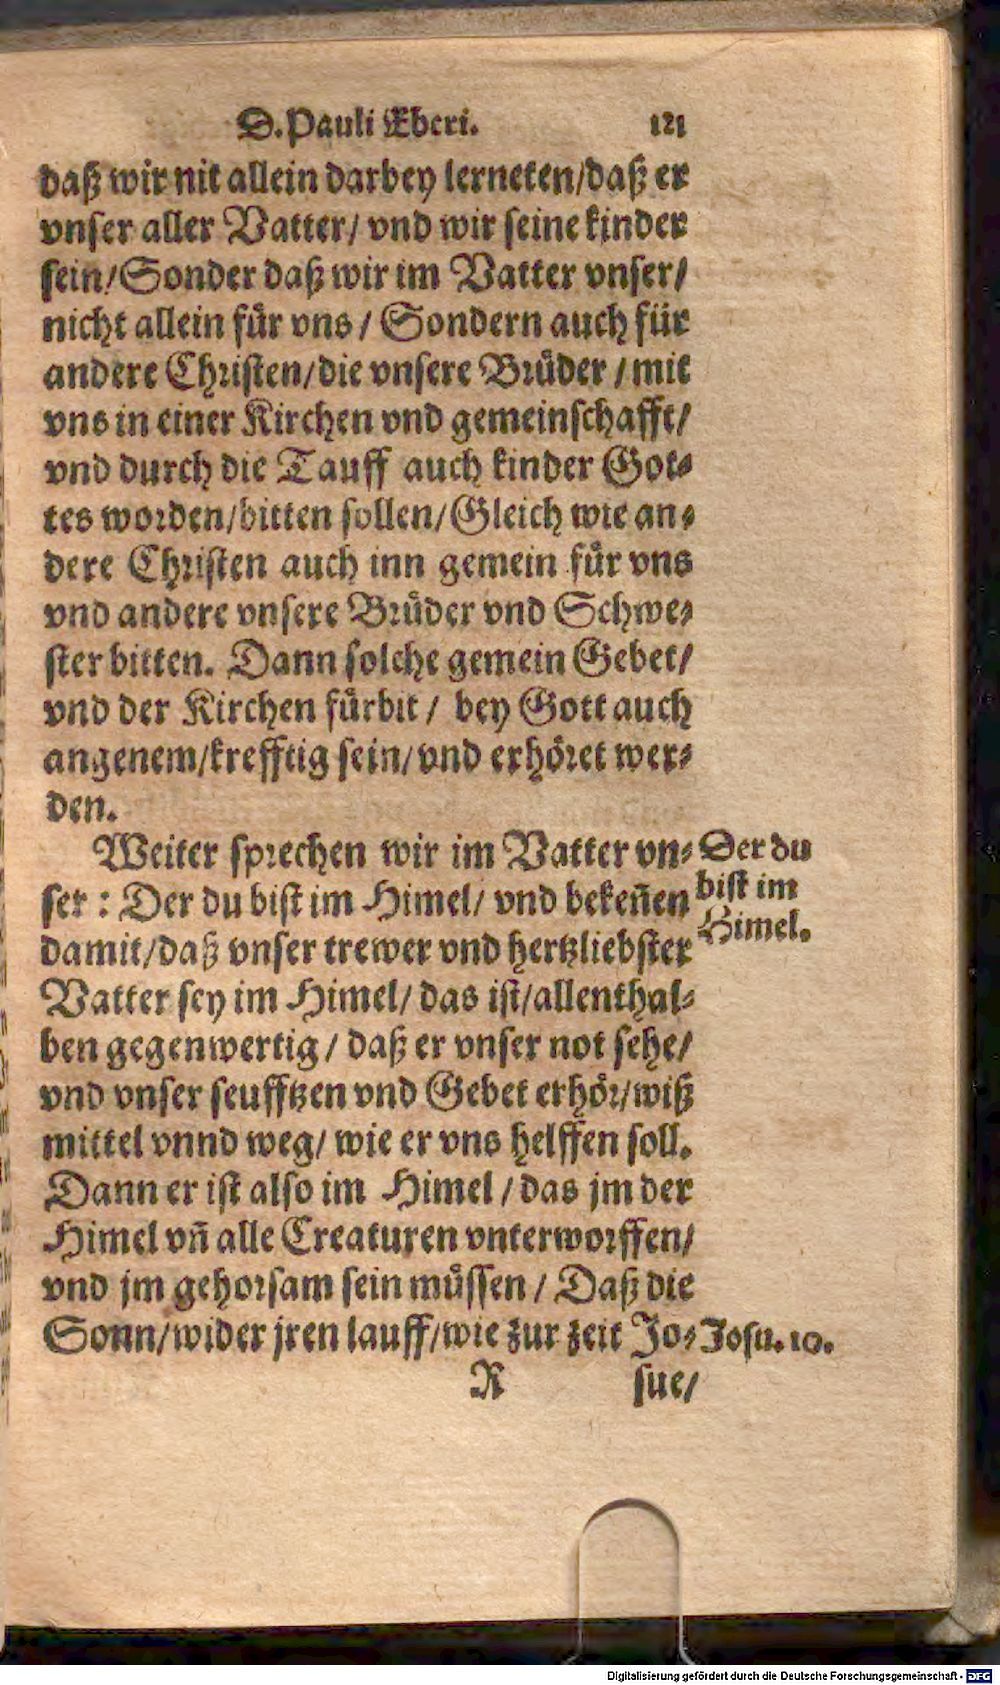 D. Pauli Eberi. 121
daß wir nit allein darbey lerneten/daß er
vnser aller Vatter/ vnd wir seine kinder
sein/Sonder daß wir im Vatter vnser/
nicht allein für vns / Sondern auch für
andere Christen/die vnsere Brüder / mit
vns in einer Kirchen vnd gemeinschafft/
vnd durch die Tauff auch kinder Got-
tes worden/bitten sollen/Gleich wie an-
dere Christen auch inn gemein für vns
vnd andere vnsere Brüder vnd Schwe-
ster bitten. Dann solche gemein Gebet/
vnd der Kirchen fürbit / bey Gott auch
angenem/krefftig sein/vnd erhöret wer-
den.
Weiter sprechen wir im Vatter vn-
ser : Der du bist im Himel/ vnd bekeñen
damit/daß vnser trewer vnd hertzliebster
Vatter sey im Himel/ das ist/allenthal-
ben gegenwertig / daß er vnser not sehe/
vnd vnser seufftzen vnd Gebet erhör/wiß
mittel vnnd weg/ wie er vns helffen soll.
Dann er ist also im Himel / das jm der
Himel vñ alle Creaturen vnterworffen/
vnd jm gehorsam sein müssen / Daß die
Sonn/wider jren lauff/wie zur zeit Jo-
R sue/
Der du
bist im
Himel.
Josu. 10.
Digitalisierung gefördert durch die Deutsche Forschungsgemeinschaft - DFG